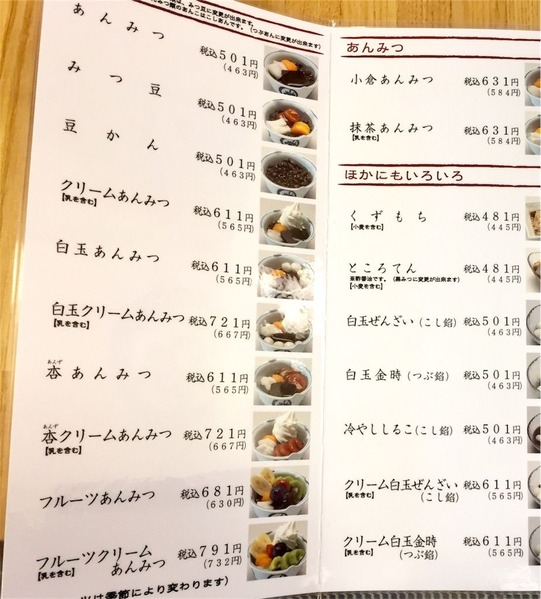 みつ豆に変更が出来ます。
のあんこはこしあんです。(つぶあんに変更が出来ます)
あんみつ 税込501円
(463円)
みつ豆 税込501円
(463円)
豆かん 税込501円
(463円)
クリームあんみつ 税込611円
【乳を含む】 (565円)
白玉あんみつ 税込611円
(565円)
白玉クリームあんみつ 税込721円
【乳を含む】 (667円)
あんず
杏あんみつ 税込611円
(565円)
あんず
杏クリームあんみつ 税込721円
【乳を含む】 (667円)
フルーツあんみつ 税込681円
(630円)
フルーツクリーム
あんみつ 税込791円
【乳を含む】 (732円)
は季節により変わります)
あんみつ
小倉あんみつ 税込631円
(584円)
抹茶あんみつ 税込631円
【乳を含む】 (584円)
ほかにもいろいろ
くずもち 税込481円
【小麦を含む】 (445円)
ところてん 税込481円
※酢醤油です。(黒みつに変更が出来ます) (445円)
【小麦を含む】
白玉ぜんざい(こし餡) 税込501円
(463円)
白玉金時(つぶ餡) 税込501円
(463円)
冷やししるこ(こし餡) 税込501円
(463円)
クリーム白玉ぜんざい 税込611円
【乳を含む】 (こし餡) (565円)
クリーム白玉金時 税込611円
【乳を含む】 (つぶ餡) (565円)